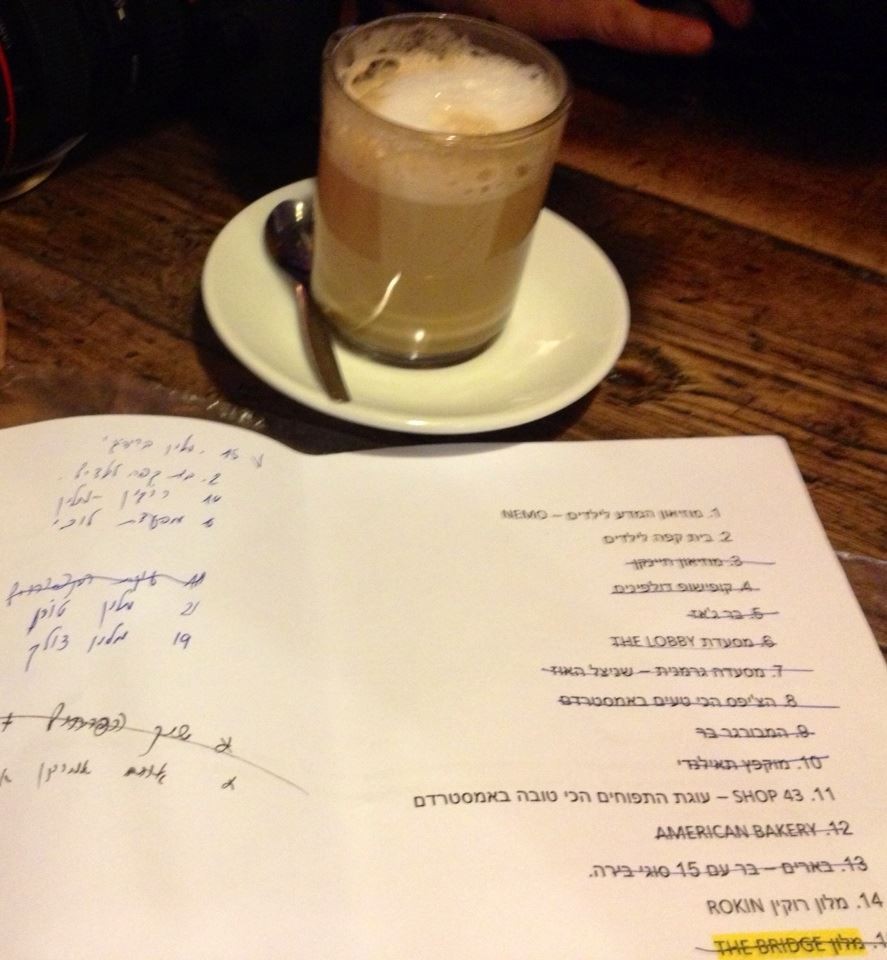 1. מוזיאון המדע לילדים – NEMO
2. בית קפה לילדים
3. מוזיאון היינקן
4. קופישופ דולפינים
5. בר ג'אז
6. מסעדת THE LOBBY
7. מסעדה גרמנית – שניצל האוז
8. הצ'יפס הכי טעים באמסטרדם
9. המבורגר בר
10. מוקפץ תאילנדי
11. SHOP 43 – עוגת התפוחים הכי טובה באמסטרדם
12. AMERICAN BAKERY
13. בארים – בר עם 15 סוגי בירה.
14. מלון רוקין ROKIN
מלון THE BRIDGE
15
2. בית קפה
14 רוקין - מלון
6 מסעדת לובי
21 מלון
19 מלון